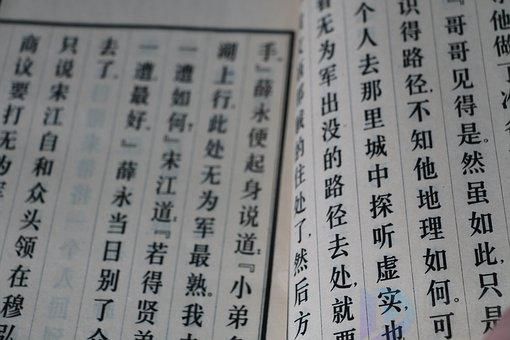 他做了
『哥哥见得是。然虽如此,只是
识得路径,不知他地理如何。可
个人去那里城中探听虚实,也
看无为军出没的路径去处,就要
的住处了,然后方
手。』薛永便起身说道:『小弟多
湖上行,此处无为军最熟。我
一遭如何?』宋江道:『若得贤弟
一遭最好。』薛永当日别了众
去了。
只说宋江自和众头领在穆弘
商议要打无为军